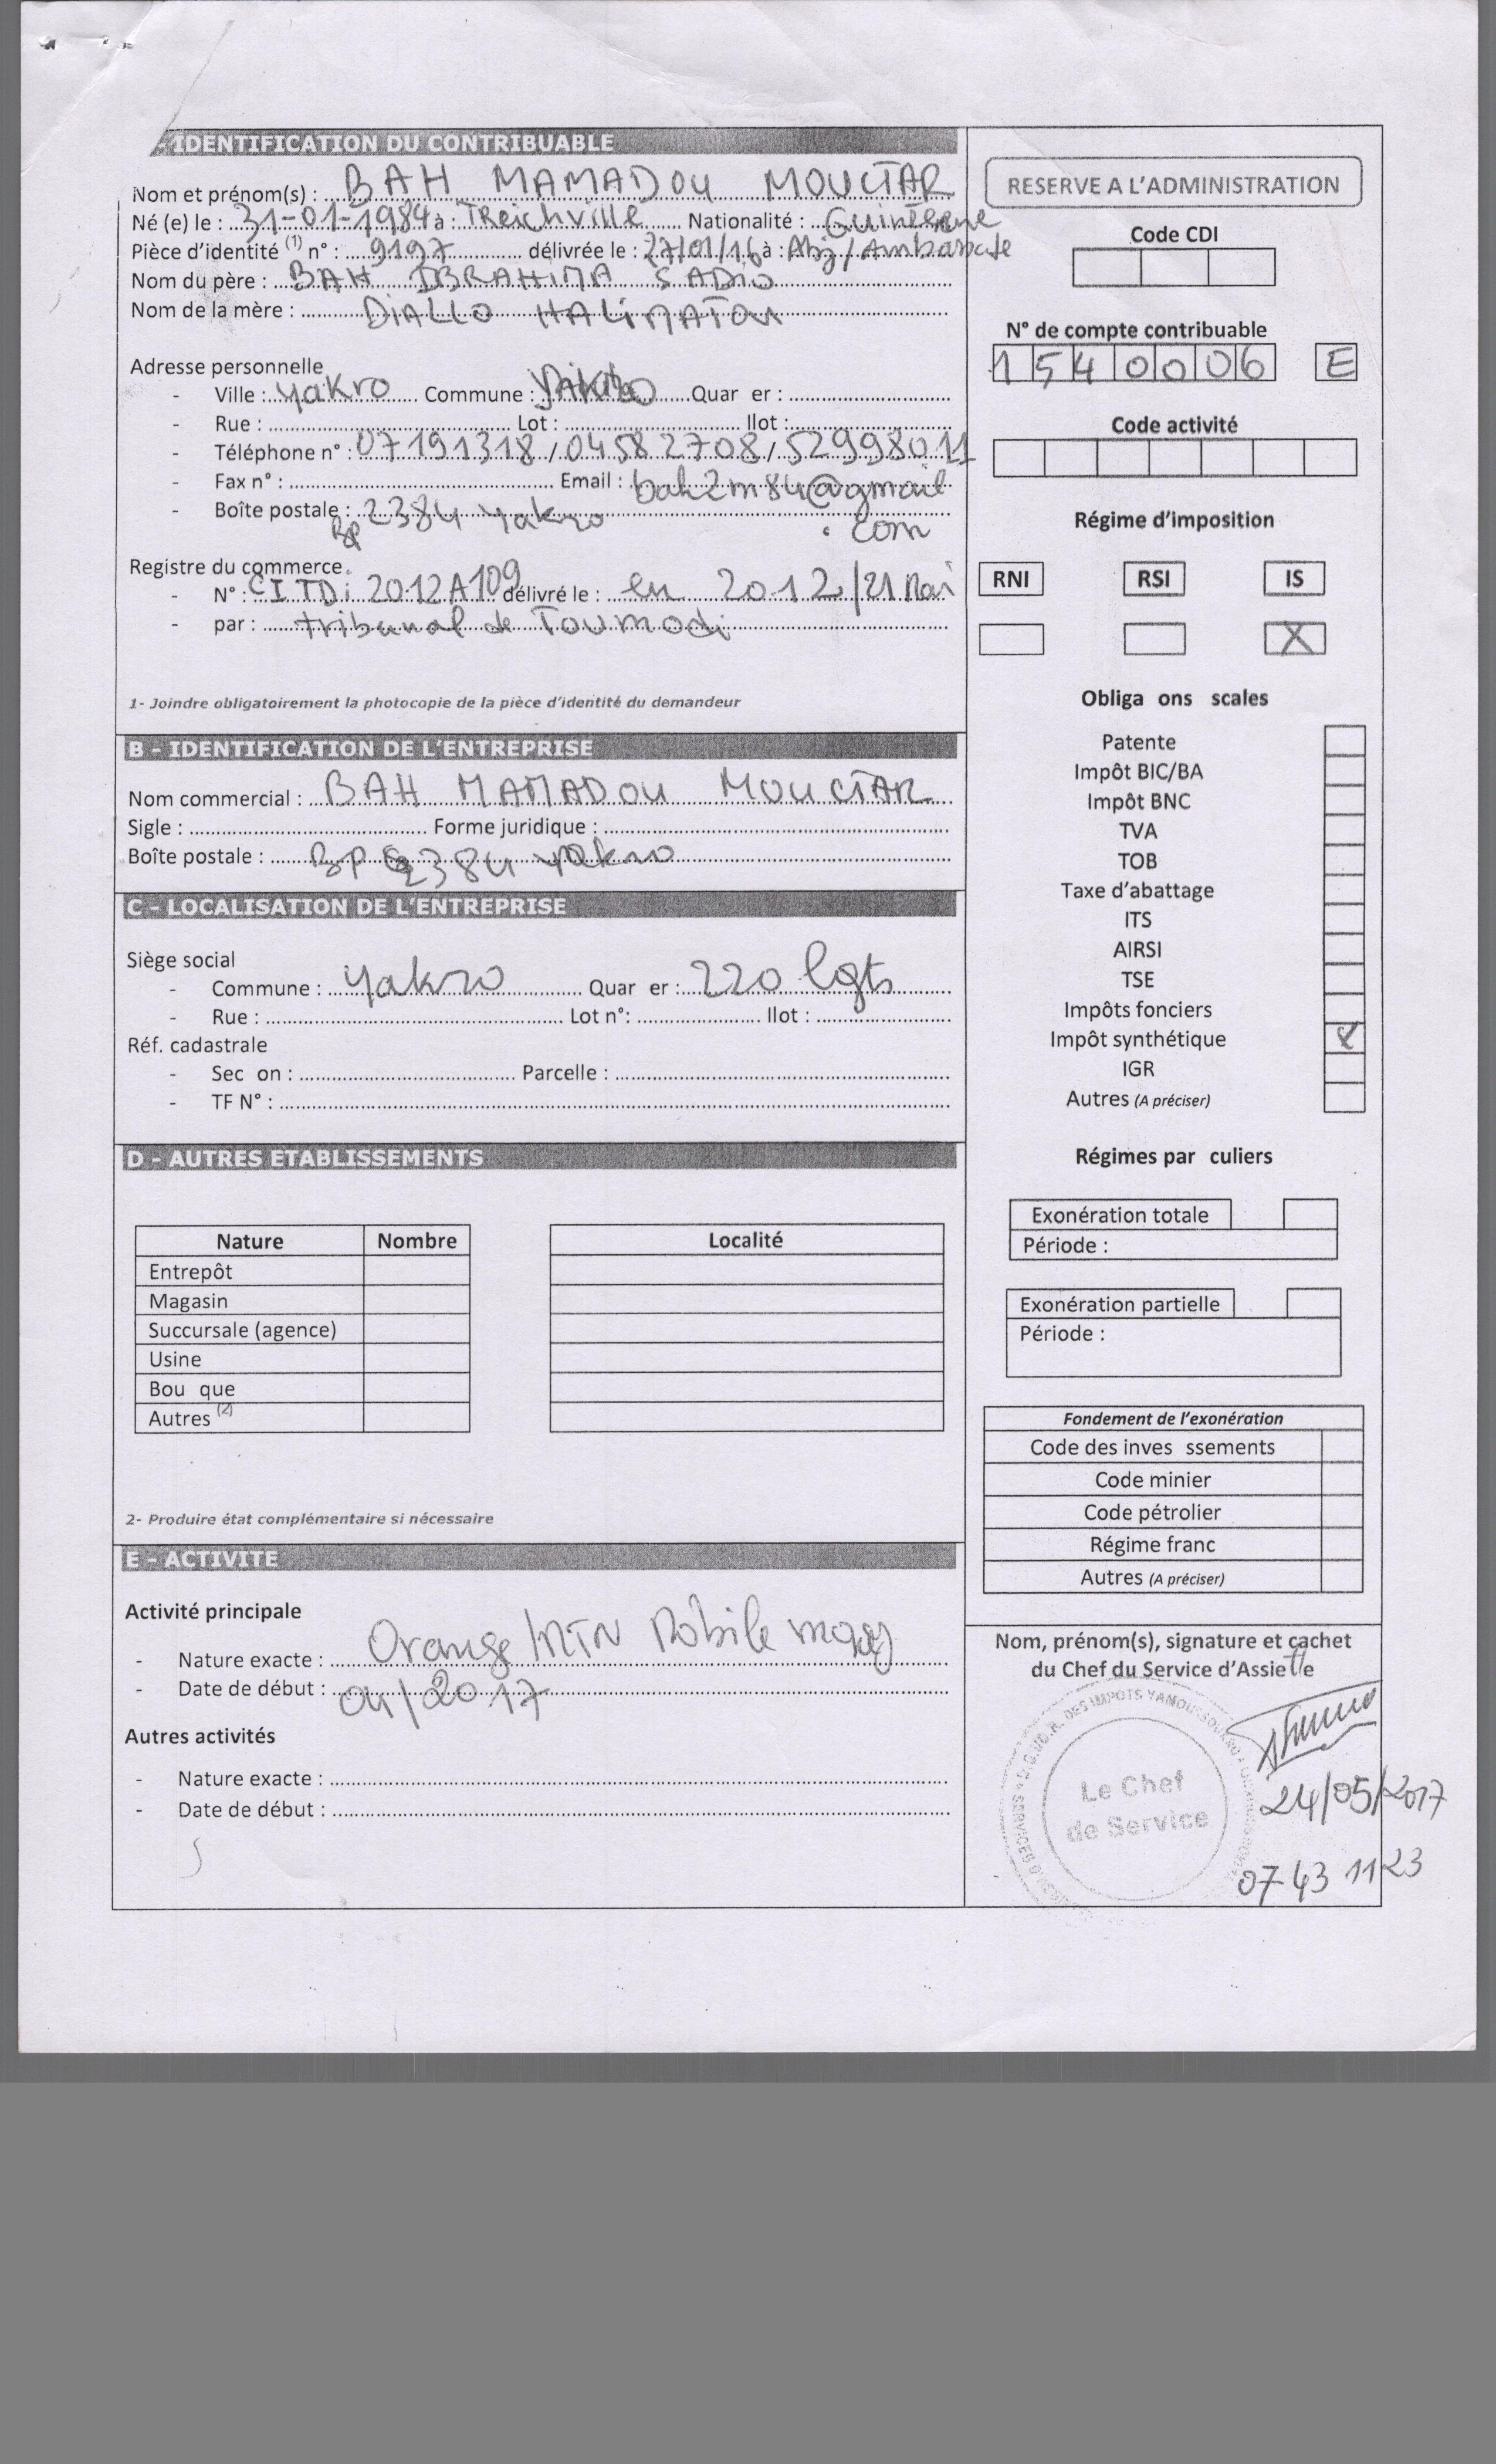 - IDENTIFICATION DU CONTRIBUABLE
Nom et prénom(s) : BAH MAMADOU MOUCTAR
Né (e) le : 31-01-1984 à : Treichville Nationalité : Guinéenne
Pièce d'identité (1) n° : 9197 délivrée le : 27/01/16 à : Abj/Ambassade
Nom du père : BAH IBRAHIMA SADIO
Nom de la mère : DIALLO HALIMATOU
Adresse personnelle
- Ville : yakro Commune : Quar er :
- Rue : Lot : Ilot :
- Téléphone n° : 07191318 / 04582708 / 52998011
- Fax n° : Email : bah2m84@gmail
.com
- Boîte postale : BP 2384 yakro
Registre du commerce
- N° : CI TDi 2012A109 délivré le : en 2012/21 Mai
- par : tribunal de Toumodi
1- Joindre obligatoirement la photocopie de la pièce d'identité du demandeur
B - IDENTIFICATION DE L'ENTREPRISE
Nom commercial : BAH MAMADOU MOUCTAR
Sigle : Forme juridique :
Boîte postale : BP 2384 yakro
C - LOCALISATION DE L'ENTREPRISE
Siège social
- Commune : Yakro Quar er : 220 lgts
- Rue : Lot n°: Ilot :
Réf. cadastrale
- Sec on : Parcelle :
- TF N° :
D - AUTRES ETABLISSEMENTS
Nature Nombre Localité
Entrepôt
Magasin
Succursale (agence)
Usine
Bou que
Autres (2)
2- Produire état complémentaire si nécessaire
E - ACTIVITE
Activité principale
- Nature exacte : Orange/MTN Mobile money
- Date de début : 04/2017
Autres activités
- Nature exacte :
- Date de début :
RESERVE A L'ADMINISTRATION
Code CDI
N° de compte contribuable
1540006 E
Code activité
Régime d'imposition
RNI RSI IS
X
Obliga ons scales
Patente
Impôt BIC/BA
Impôt BNC
TVA
TOB
Taxe d'abattage
ITS
AIRSI
TSE
Impôts fonciers
Impôt synthétique X
IGR
Autres (A préciser)
Régimes par culiers
Exonération totale
Période :
Exonération partielle
Période :
Fondement de l'exonération
Code des inves ssements
Code minier
Code pétrolier
Régime franc
Autres (A préciser)
Nom, prénom(s), signature et cachet
du Chef du Service d'Assiette
DES IMPOTS YAMOUSSOUKRO
Le Chef
de Service
24/05/2017
07 43 11 23